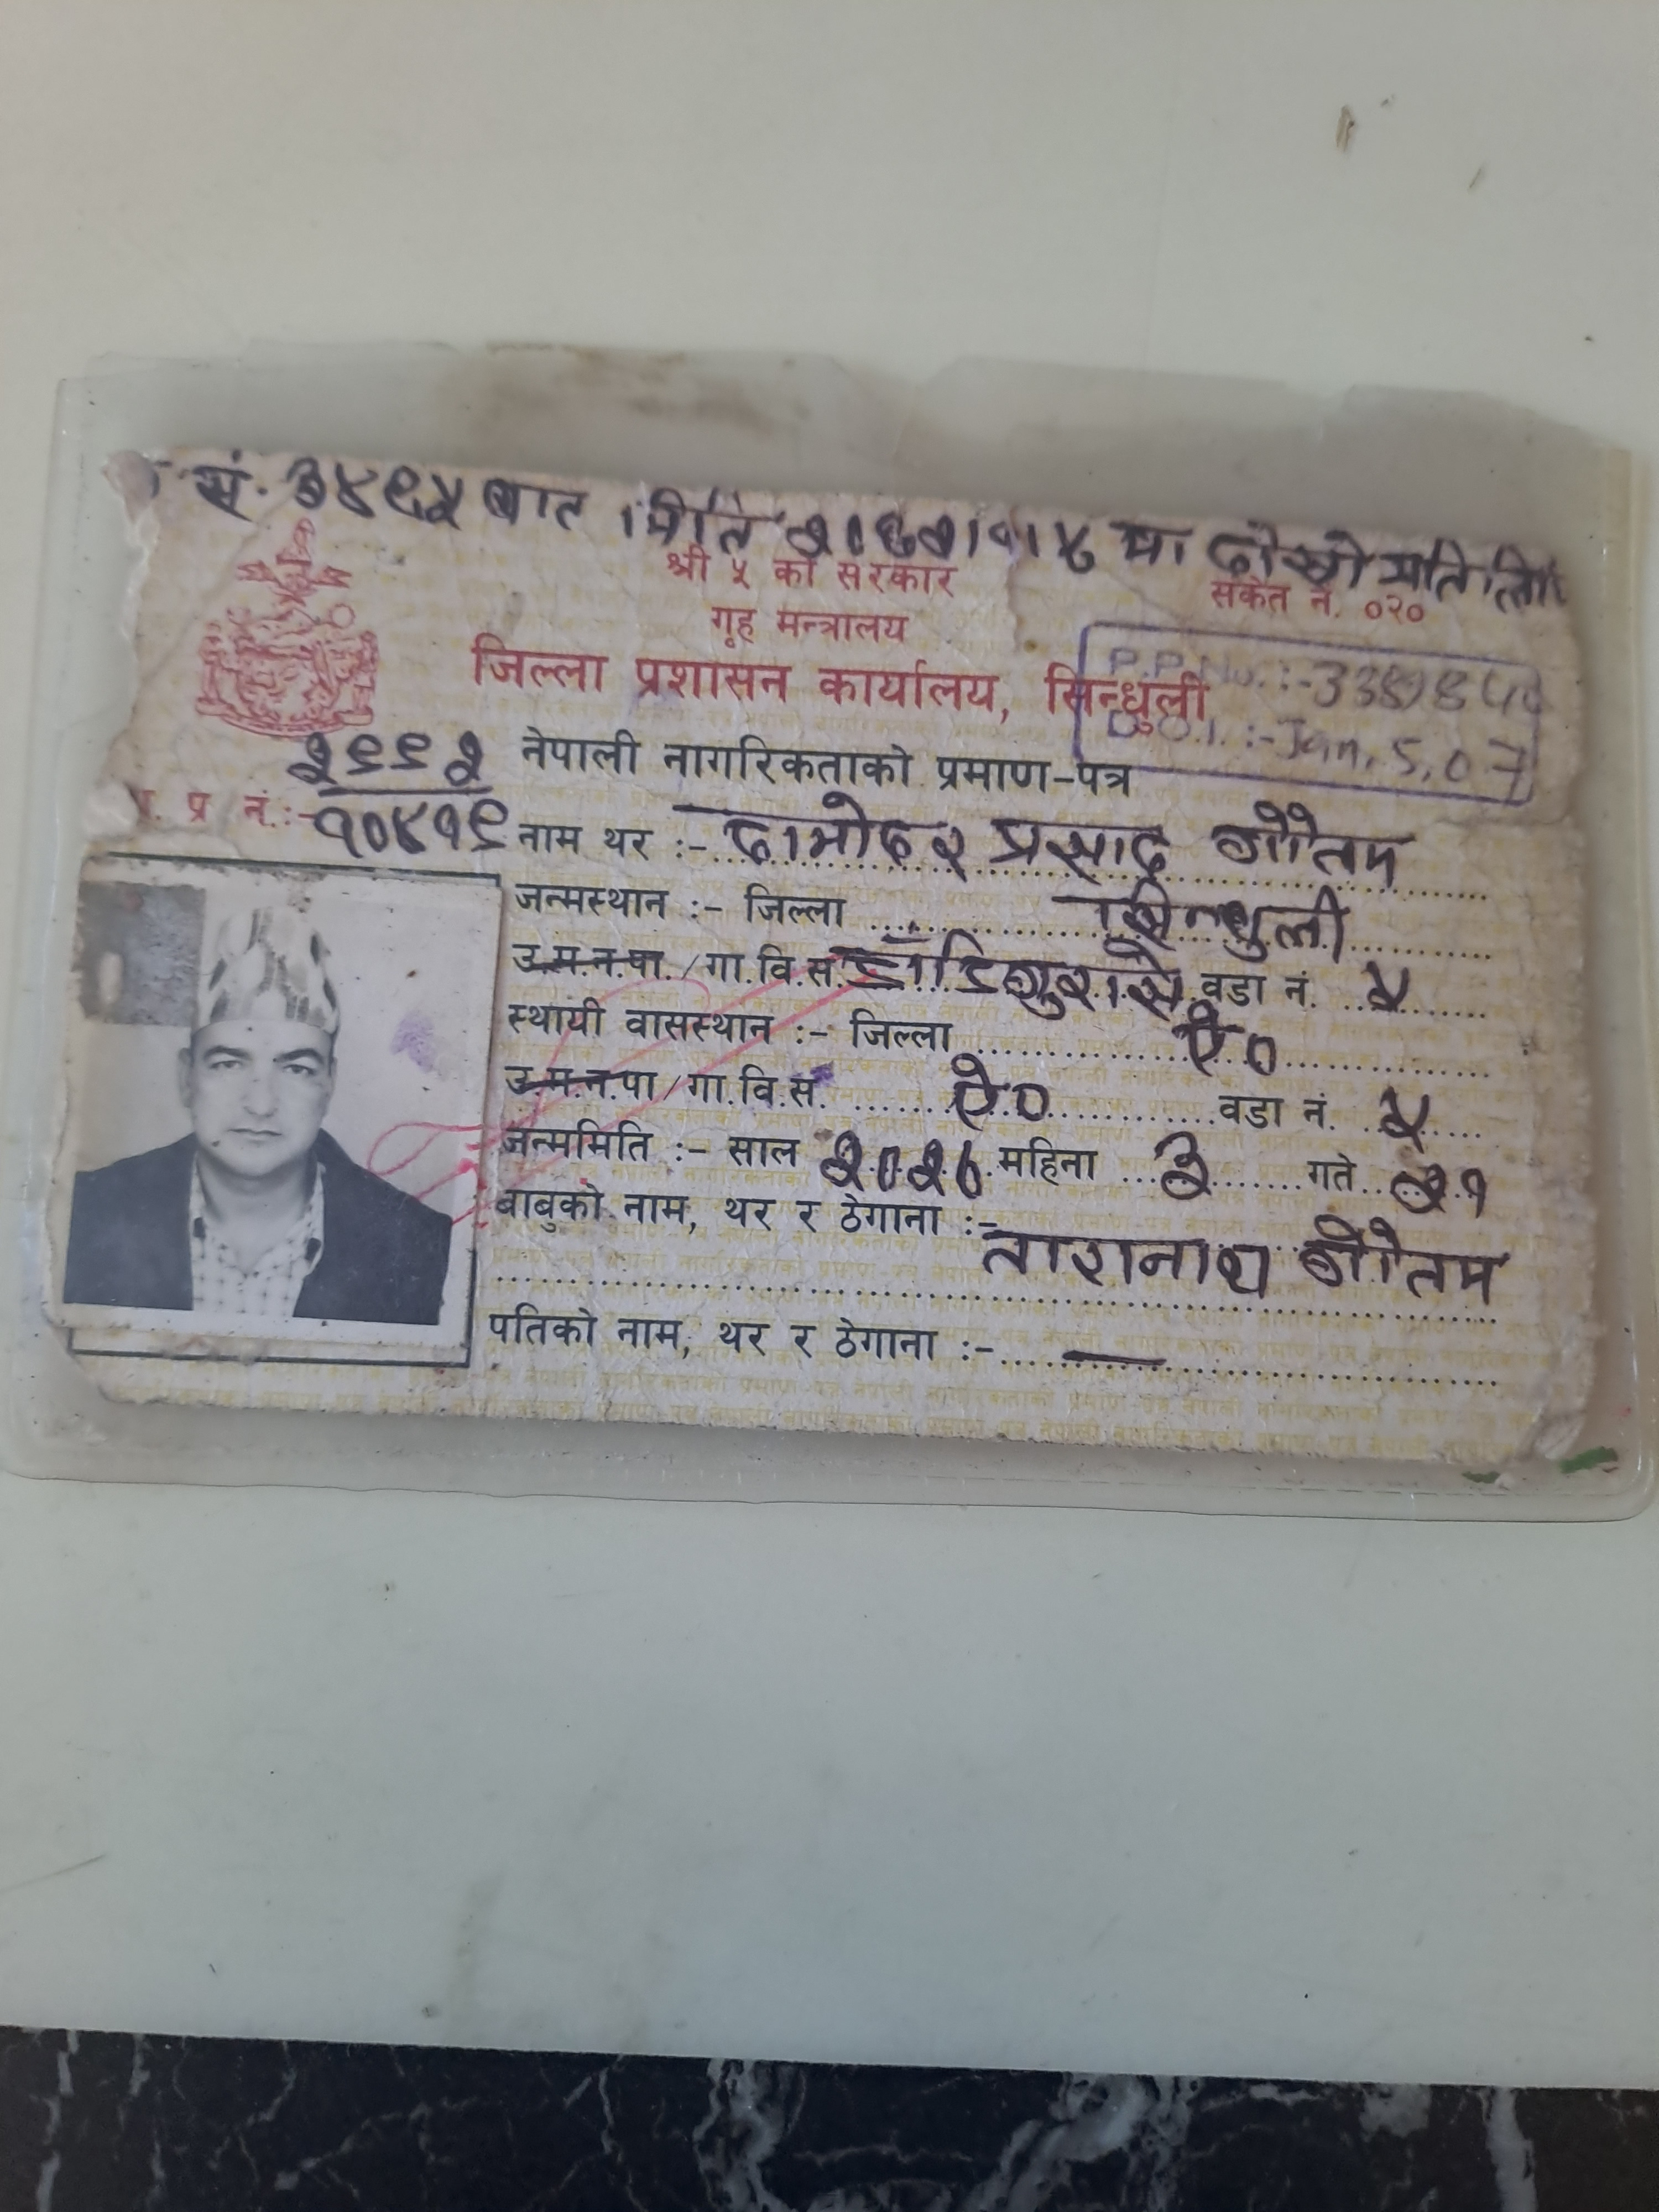 सं. ३४९५ बाट मिति २०६३।९।४ मा दोस्रो प्रतिलिपि
श्री ५ को सरकार
संकेत नं. ०२०
गृह मन्त्रालय
जिल्ला प्रशासन कार्यालय, सिन्धुली
P.P.No. :-
D.O.I. :- Jan, 5, 07
नेपाली नागरिकताको प्रमाण-पत्र
प्र नं.:- १०४१९
नाम थर :- दामोदर प्रसाद गौतम
जन्मस्थान :- जिल्ला सिन्धुली
उ.म.न.पा./गा.वि.स. वडा नं. ५
स्थायी वासस्थान :- जिल्ला ऐ०
उ.म.न.पा/गा.वि.स. ऐ० वडा नं. ५
जन्ममिति :- साल २०२६ महिना ३ गते ३१
बाबुको नाम, थर र ठेगाना :-
तारानाथ गौतम
पतिको नाम, थर र ठेगाना :- —